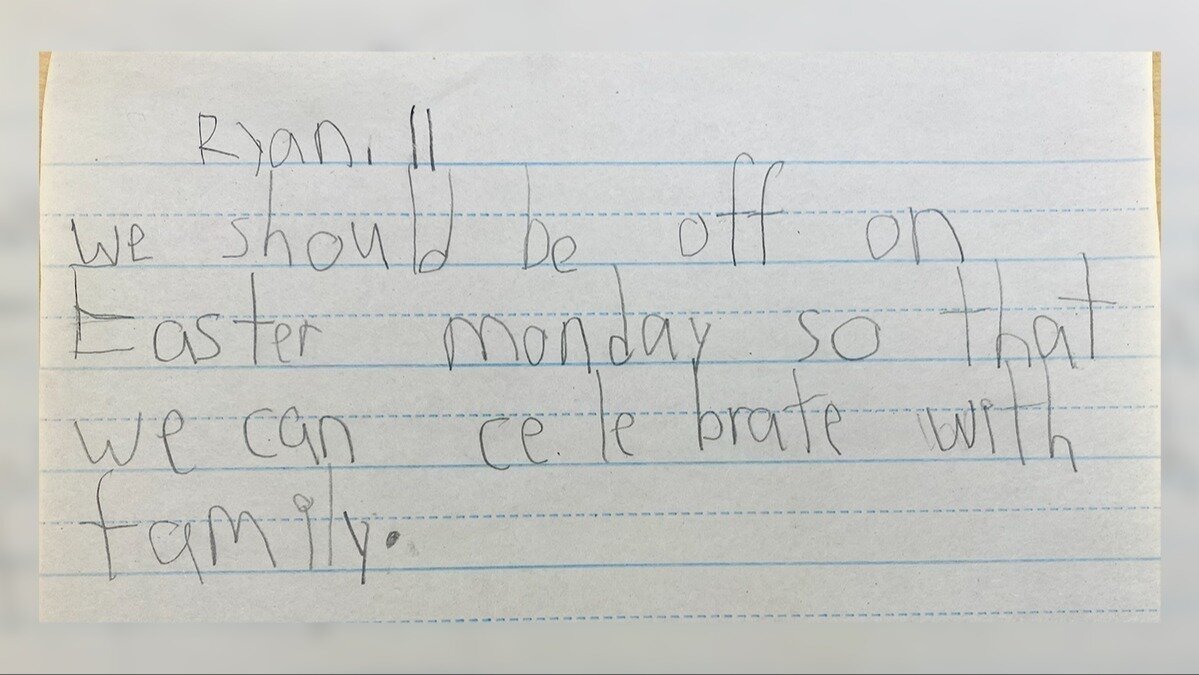 Ryan, 11
we should be off on
Easter monday so that
we can celebrate with
family.